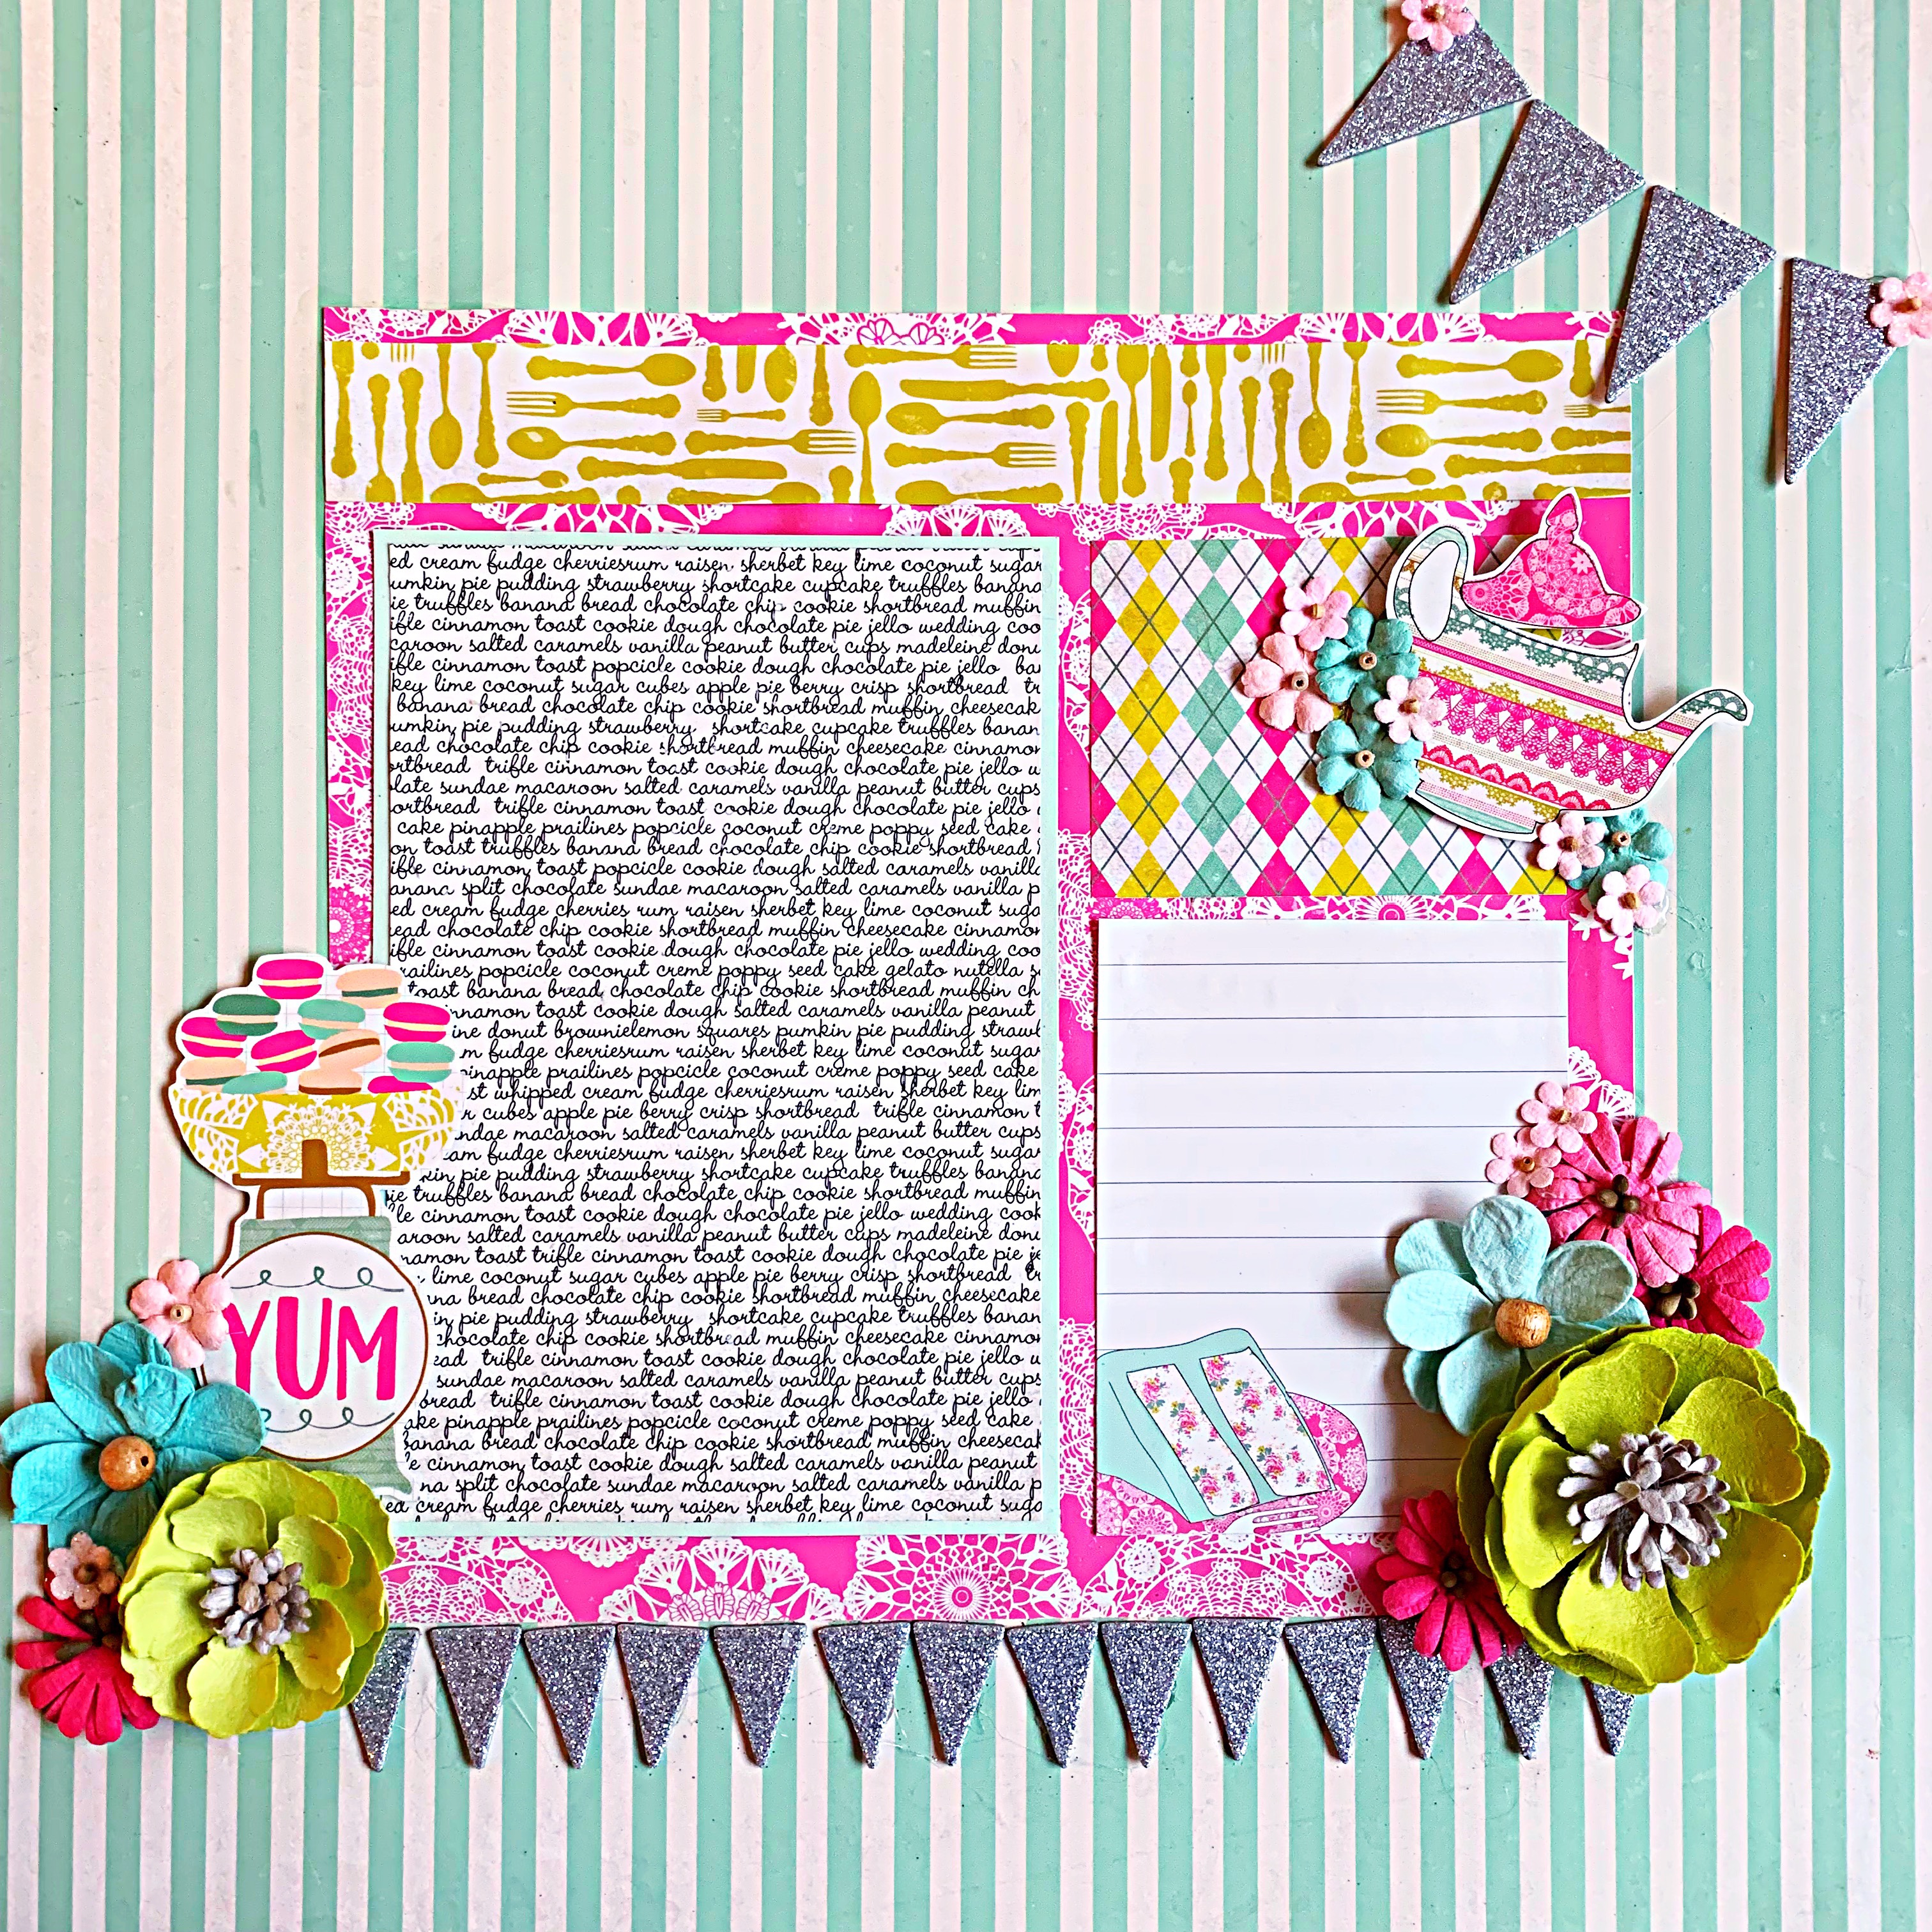 ed cream fudge cherriesrum raisen sherbet key lime coconut sugar
umkin pie pudding strawberry shortcake cupcake truffles banana
ie truffles banana bread chocolate chip cookie shortbread muffin
ifle cinnamon toast cookie dough chocolate pie jello wedding coo
caroon salted caramels vanilla peanut butter cups madeleine donu
ifle cinnamon toast popcicle cookie dough chocolate pie jello ba
key lime coconut sugar cubes apple pie berry crisp shortbread tr
banana bread chocolate chip cookie shortbread muffin cheesecak
umkin pie pudding strawberry shortcake cupcake truffles banan
ead chocolate chip cookie shortbread muffin cheesecake cinnamon
ortbread trifle cinnamon toast cookie dough chocolate pie jello w
late sundae macaroon salted caramels vanilla peanut butter cups
ortbread trifle cinnamon toast cookie dough chocolate pie jello
cake pinapple prailines popcicle coconut creme poppy seed cake
on toast truffles banana bread chocolate chip cookie shortbread
ifle cinnamon toast popcicle cookie dough salted caramels vanilla
anana split chocolate sundae macaroon salted caramels vanilla p
ed cream fudge cherries rum raisen sherbet key lime coconut suga
ead chocolate chip cookie shortbread muffin cheesecake cinnamon
ifle cinnamon toast cookie dough chocolate pie jello wedding coo
railines popcicle coconut creme poppy seed cake gelato nutella s
toast banana bread chocolate chip cookie shortbread muffin ch
nnamon toast cookie dough salted caramels vanilla peanut
ine donut brownielemon squares pumkin pie pudding strawb
m fudge cherriesrum raisen sherbet key lime coconut sugar
pinapple prailines popcicle coconut creme poppy seed cake
st whipped cream fudge cherriesrum raisen sherbet key lim
r cubes apple pie berry crisp shortbread trifle cinnamon t
ndae macaroon salted caramels vanilla peanut butter cups
am fudge cherriesrum raisen sherbet key lime coconut sugar
kin pie pudding strawberry shortcake cupcake truffles banana
ie truffles banana bread chocolate chip cookie shortbread muffin
le cinnamon toast cookie dough chocolate pie jello wedding cook
aroon salted caramels vanilla peanut butter cups madeleine donu
namon toast trifle cinnamon toast cookie dough chocolate pie je
lime coconut sugar cubes apple pie berry crisp shortbread tr
na bread chocolate chip cookie shortbread muffin cheesecake
in pie pudding strawberry shortcake cupcake truffles banan
chocolate chip cookie shortbread muffin cheesecake cinnamon
YUM
ead trifle cinnamon toast cookie dough chocolate pie jello w
sundae macaroon salted caramels vanilla peanut butter cups
bread trifle cinnamon toast cookie dough chocolate pie jello
ake pinapple prailines popcicle coconut creme poppy seed cake
banana bread chocolate chip cookie shortbread muffin cheesecak
e cinnamon toast cookie dough salted caramels vanilla peanut
na split chocolate sundae macaroon salted caramels vanilla p
ed cream fudge cherries rum raisen sherbet key lime coconut suga